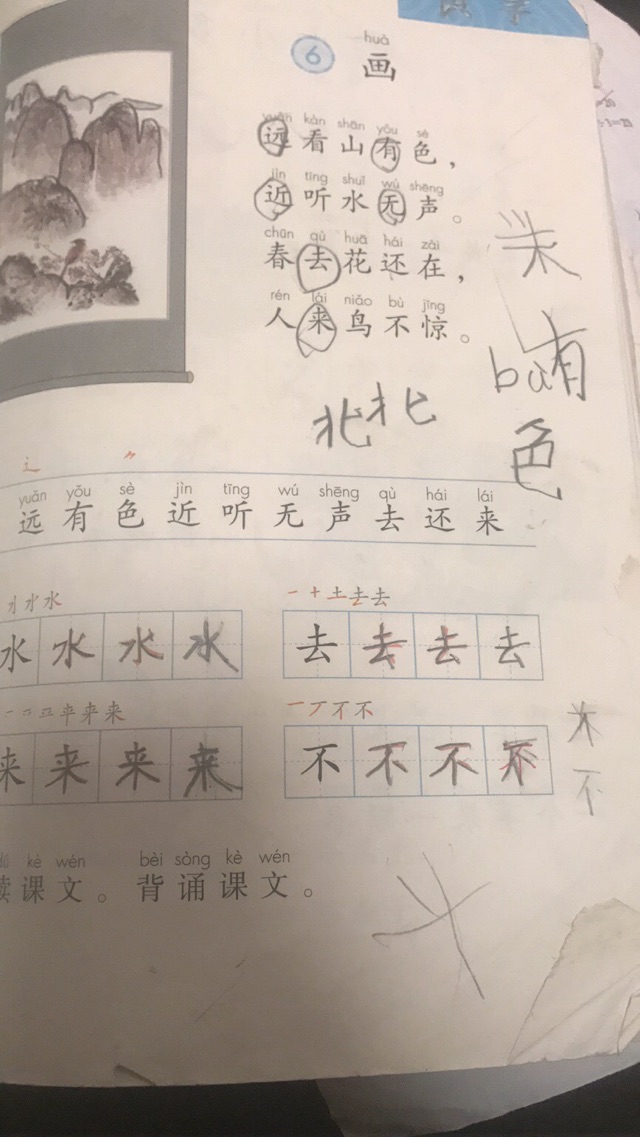 识字
huà
6 画
yuǎn kàn shān yǒu sè
远看山有色，
jìn tīng shuǐ wú shēng
近听水无声。
chūn qù huā hái zài
春去花还在，
rén lái niǎo bù jīng
人来鸟不惊。
bù有
色
北北
辶 〃
yuǎn yǒu sè jìn tīng wú shēng qù hái lái
远有色近听无声去还来
水水水水
一十土去去
去去去去
来来来来
一丆不不
不不不不
不
kè wén bèi sòng kè wén
读课文。背诵课文。